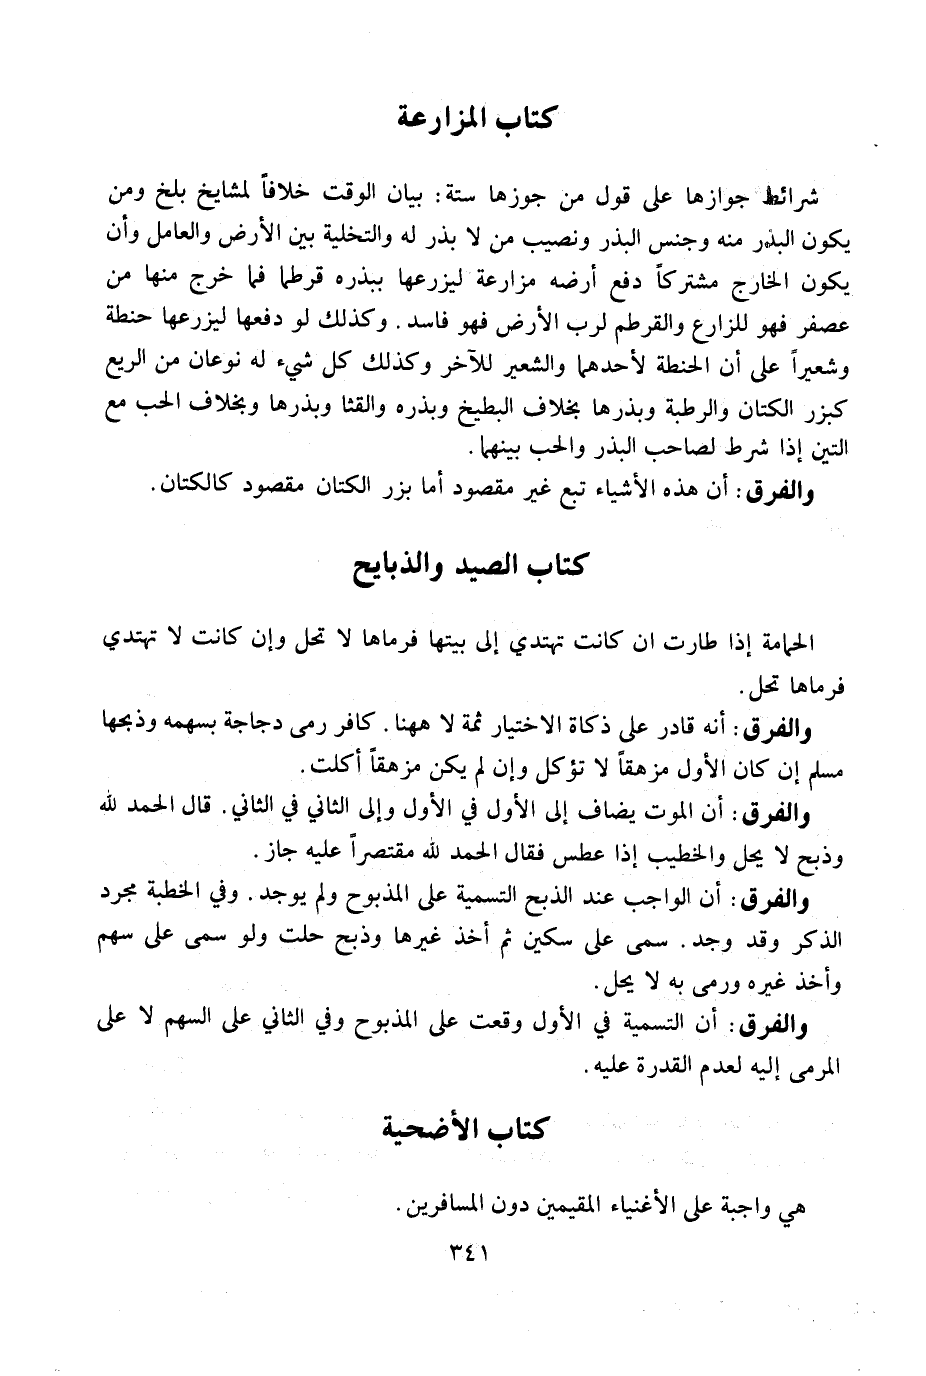 كتاب المزارعة
شرائط جوازها على قول من جوزها ستة: بيان الوقت خلافاً لمشايخ بلخ ومن
يكون البذر منه وجنس البذر ونصيب من لا بذر له والتخلية بين الأرض والعامل وأن
يكون الخارج مشتركاً دفع أرضه مزارعة ليزرعها ببذره قرطما فما خرج منها من
عصفر فهو للزارع والقرطم لرب الأرض فهو فاسد. وكذلك لو دفعها ليزرعها حنطة
وشعيراً على أن الحنطة لأحدهما والشعير للآخر وكذلك كل شيء له نوعان من الريع
كبزر الكتان والرطبة وبذرها بخلاف البطيخ وبذره والقثا وبذرها وبخلاف الحب مع
التين إذا شرط لصاحب البذر والحب بينهما.
والفرق: أن هذه الأشياء تبع غير مقصود أما بزر الكتان مقصود كالكتان.
كتاب الصيد والذبايح
الحمامة إذا طارت ان كانت تهتدي إلى بيتها فرماها لا تحل وإن كانت لا تهتدي
فرماها تحل.
والفرق: أنه قادر على ذكاة الاختيار ثمة لا ههنا. كافر رمى دجاجة بسهمه وذبحها
مسلم إن كان الأول مزهقاً لا تؤكل وإن لم يكن مزهقاً أكلت.
والفرق: أن الموت يضاف إلى الأول في الأول وإلى الثاني في الثاني. قال الحمد لله
وذبح لا يحل والخطيب إذا عطس فقال الحمد لله مقتصراً عليه جاز.
والفرق: أن الواجب عند الذبح التسمية على المذبوح ولم يوجد. وفي الخطبة مجرد
الذكر وقد وجد. سمى على سكين ثم أخذ غيرها وذبح حلت ولو سمى على سهم
وأخذ غيره ورمى به لا يحل.
والفرق: أن التسمية في الأول وقعت على المذبوح وفي الثاني على السهم لا على
المرمى إليه لعدم القدرة عليه.
كتاب الأضحية
هي واجبة على الأغنياء المقيمين دون المسافرين.
٣٤١